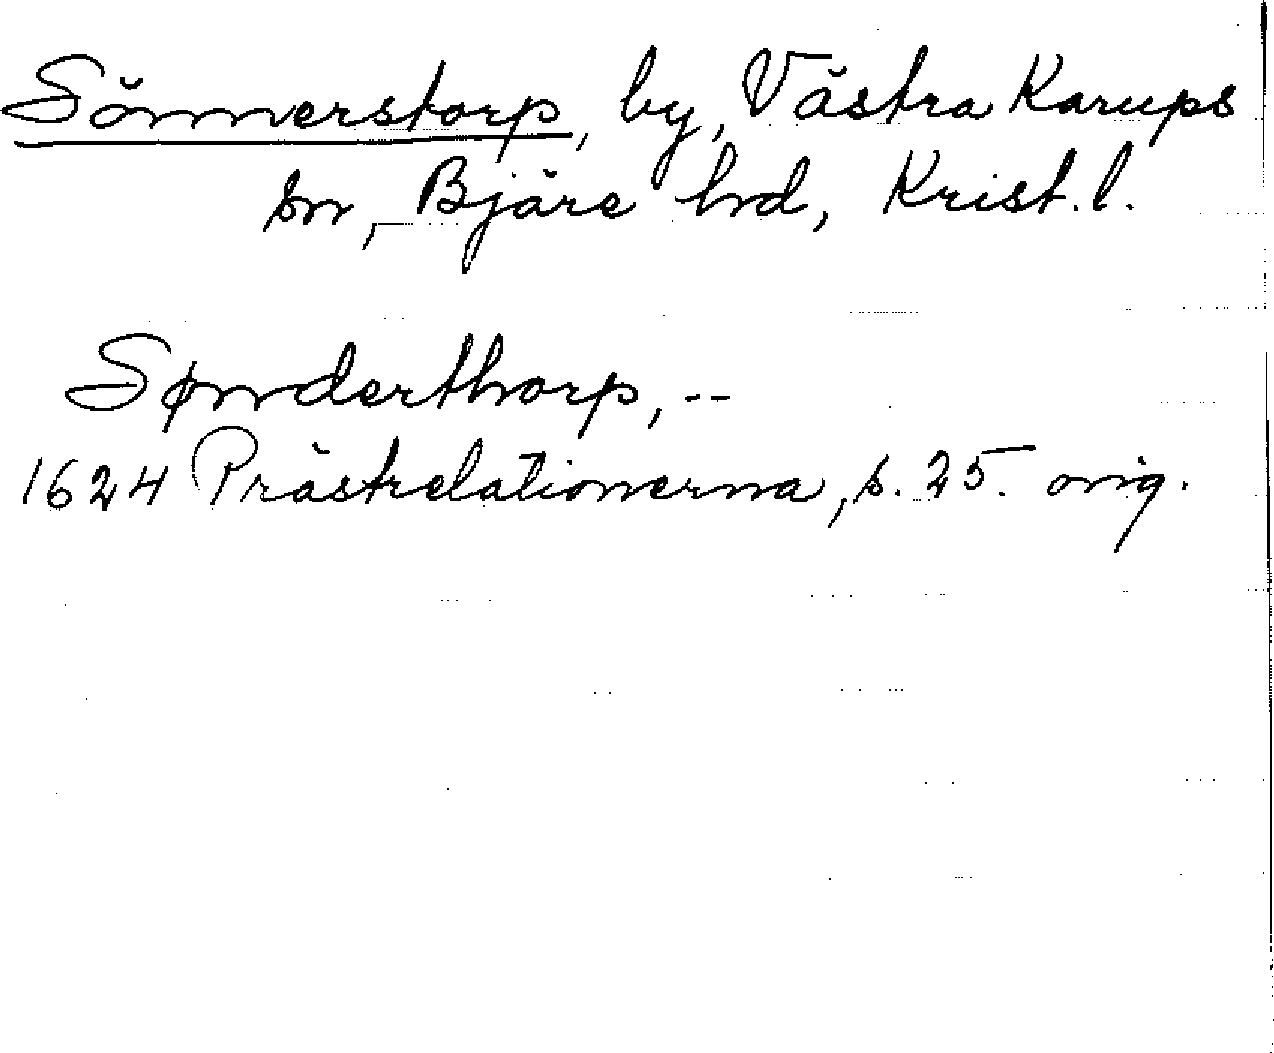 Sönnerstorp, by, Västra Karups
sn, Bjäre hd, Krist. l.
Sønderthorp, --
1624 Prästrelationerna, s. 25. orig.